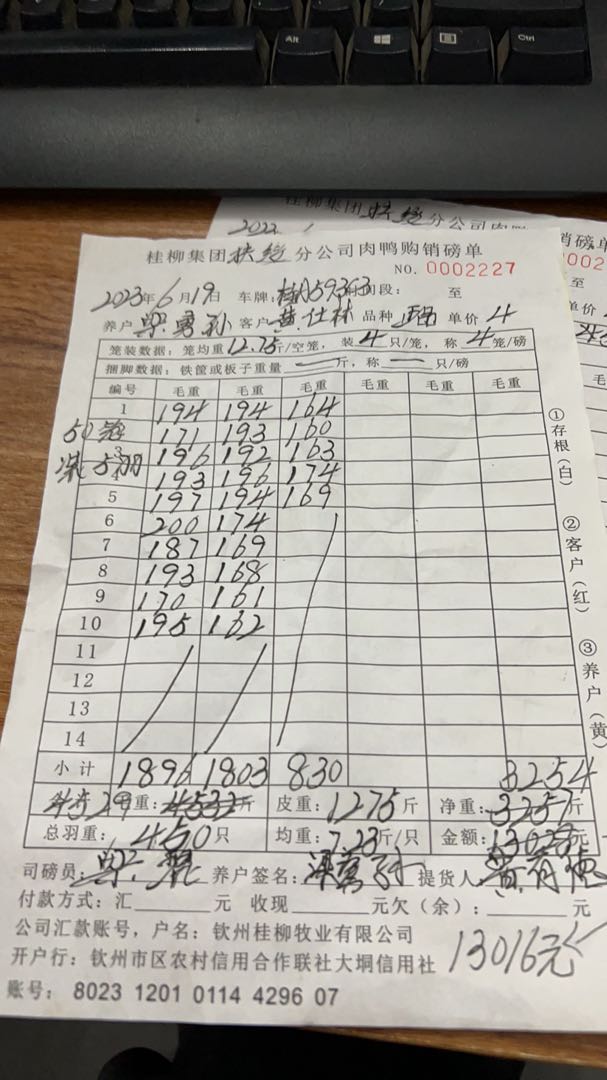 Alt
Ctrl
桂柳集团 分公司肉
2022
桂柳集团扶绥分公司肉鸭购销磅单
NO. 0002227
2023年6月19日 车牌:桂A59363 时间段: 至
养户 梁勇孙 客户 黄仕林 品种 单价 4
笼装数据: 笼均重12.75斤/空笼, 装4只/笼, 称4笼/磅
捆脚数据: 铁筐或板子重量 — 斤, 称 — 只/磅
编号 毛重 毛重 毛重 毛重 毛重 毛重
1 194 194 164
50笼 171 193 160
装5羽 3 196 192 163
4 193 196 174
5 197 194 169
6 200 174
7 187 169
8 193 168
9 170 161
10 195 162
11
12
13
14
小计 1896 1803 830 3254
重: 4532斤 皮重: 1275斤 净重: 3257斤
总羽重: 450只 均重: 7.23斤/只 金额: 13028元
司磅员: 养户签名: 提货人
付款方式: 汇 元 收现 元欠(余): 元
公司汇款账号, 户名: 钦州桂柳牧业有限公司
13016元
开户行: 钦州市区农村信用合作联社大垌信用社
账号: 8023 1201 0114 4296 07
①存根(白)
②客户(红)
③养户(黄)
销磅单
002
至
单价
毛